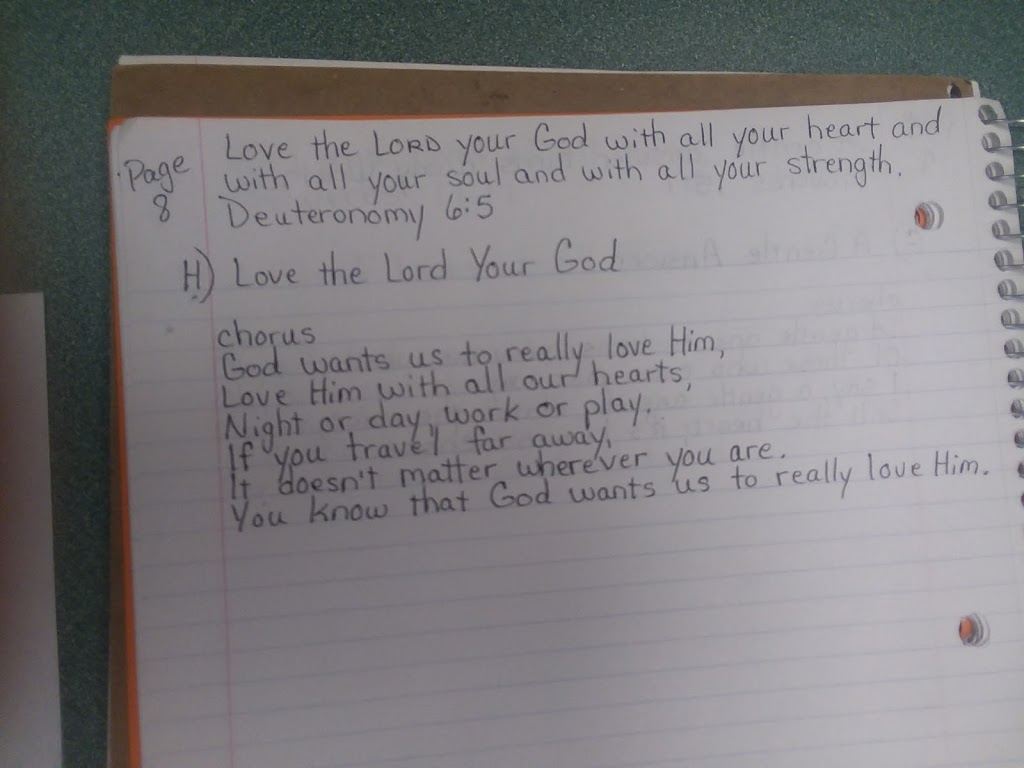 Love the LORD your God with all your heart and
Page with all your soul and with all your strength.
8 Deuteronomy 6:5
H) Love the Lord Your God
chorus
God wants us to really love Him,
Love Him with all our hearts,
Night or day, work or play.
If you travel far away,
It doesn't matter wherever you are.
You know that God wants us to really love Him.